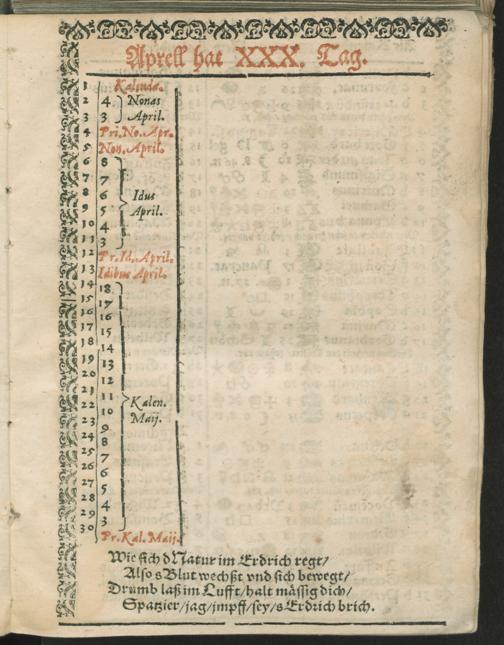 Aprell hat XXX. Tag.
1 Kalenda.
2 4 Nonas
3 3 April.
4 Pri. No. Apr.
5 Non. April.
6 8
7 7
8 6 Idus
9 5 April.
10 4
11 3
12 Pr. Id. April.
13 Idibus April.
14 18
15 17
16 16
17 15
18 14
19 13
20 12
21 11 Kalen.
22 10 Maij.
23 9
24 8
25 7
26 6
27 5
28 4
29 3
30 Pr. Kal. Maij.
Wie sich d Natur im Erdrich regt/
Also s Blut wechßt vnd sich bewegt/
Drumb laß im Lufft/halt mässig dich/
Spatzier/jag/impff/sey/s Erdrich brich.